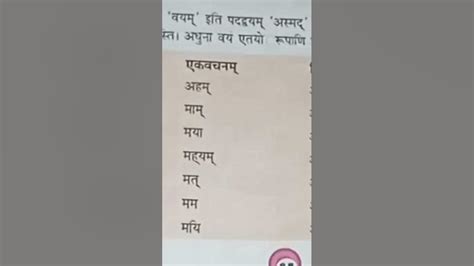 'वयम्' इति पदद्वयम् 'अस्मद्'
स्त। अधुना वयं एतयो रूपाणि
एकवचनम्
अहम्
माम्
मया
मह्यम्
मत्
मम
मयि